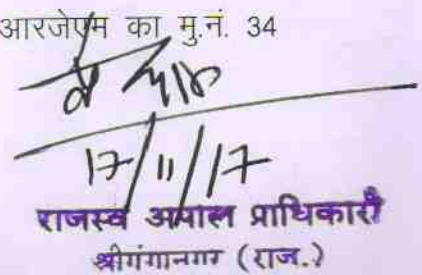 आरजेएम का मु.नं. 34
17/11/17
राजस्व अपील प्राधिकारी
श्रीगंगानगर (राज.)